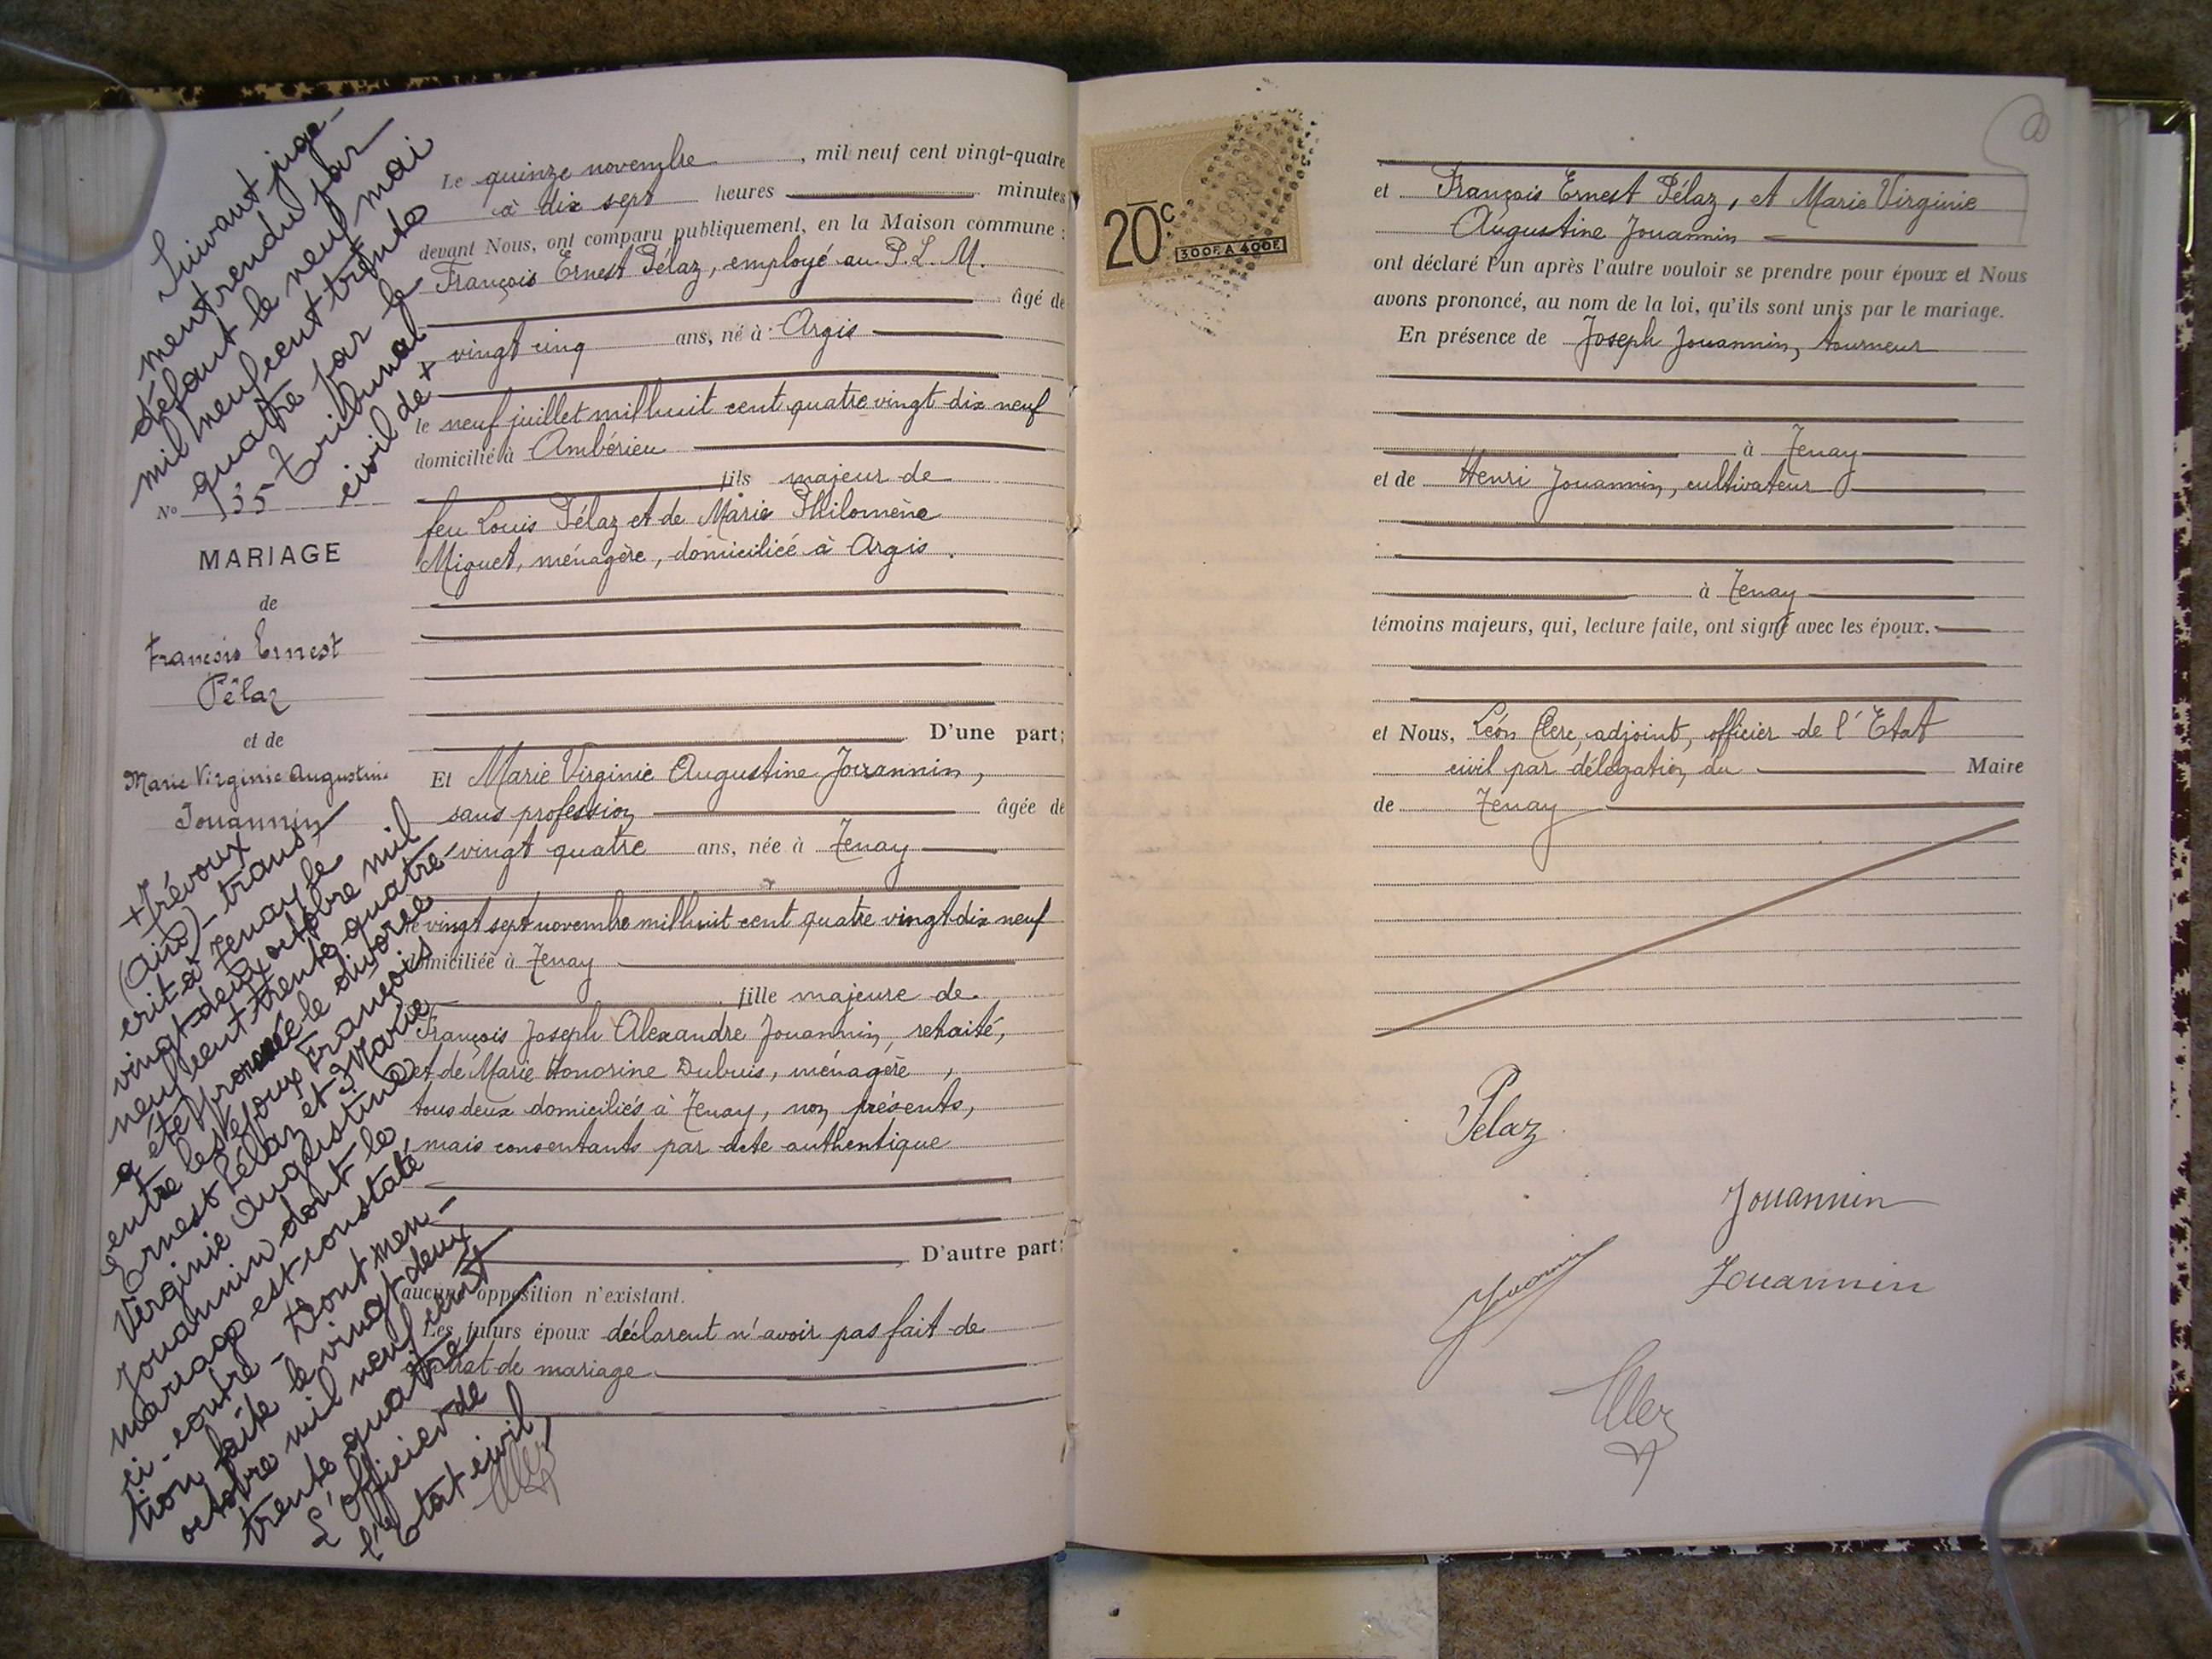 Suivant juge-
ment rendu par
défaut le neuf mai
mil neuf cent trente
quatre par le
tribunal
civil de +
N° 35
MARIAGE
de
François Ernest
Pélaz
et de
Marie Virginie Augustine
Jouannin
+ Trévoux
(Ain) - trans-
crit à Tenay le
vingt-deux octobre mil
neuf cent trente quatre
a été prononcé le divorce
entre les époux François
Ernest Pélaz et Marie
Virginie Augustine
Jouannin dont le
mariage est constaté
ci-contre - Dont men-
tion faite le vingt deux
octobre mil neuf cent
trente quatre
L'Officier de
l'Etat civil,
Le quinze novembre, mil neuf cent vingt-quatre
à dix sept heures minutes
devant Nous, ont comparu publiquement, en la Maison commune :
François Ernest Pélaz, employé au P. L. M.
âgé de
vingt cinq ans, né à Argis
le neuf juillet mil huit cent quatre vingt dix neuf
domicilié à Ambérieu
fils majeur de
feu Louis Pélaz et de Marie Philomène
Miguet, ménagère, domiciliée à Argis.
D'une part;
Et Marie Virginie Augustine Jouannin,
sans profession âgée de
vingt quatre ans, née à Tenay
le vingt sept novembre mil huit cent quatre vingt dix neuf
domiciliée à Tenay
fille majeure de
François Joseph Alexandre Jouannin, retraité,
et de Marie Honorine Dubuis, ménagère,
tous deux domiciliés à Tenay, non présents,
mais consentants par acte authentique
D'autre part;
aucune opposition n'existant.
Les futurs époux déclarent n'avoir pas fait de
contrat de mariage
20c
300F. A 400F.
et François Ernest Pélaz, et Marie Virginie
Augustine Jouannin
ont déclaré l'un après l'autre vouloir se prendre pour époux et Nous
avons prononcé, au nom de la loi, qu'ils sont unis par le mariage.
En présence de Joseph Jouannin, tourneur
à Tenay
et de Henri Jouannin, cultivateur
à Tenay
témoins majeurs, qui, lecture faite, ont signé avec les époux.
et Nous, Léon Clerc, adjoint, officier de l'Etat
civil par délégation du Maire
de Tenay
Pelaz
Jouannin
Jouannin